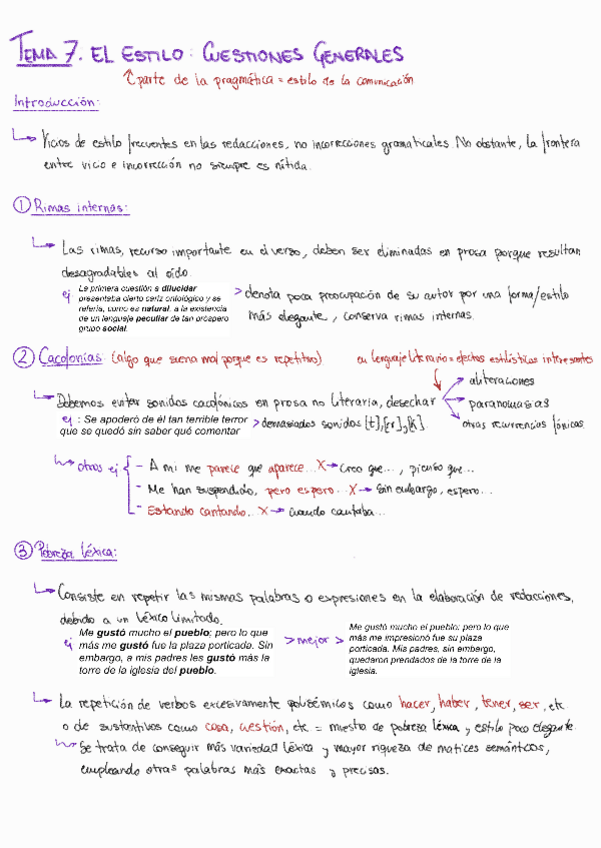 TEMA 7. EL ESTILO: CUESTIONES GENERALES
↑ parte de la pragmática = estilo de la comunicación
Introducción:
Vicios de estilo frecuentes en las redacciones, no incorrecciones gramaticales. No obstante, la frontera
entre vicio e incorrección no siempre es nítida.
① Rimas internas:
Las rimas, recurso importante en el verso, deben ser eliminadas en prosa porque resultan
desagradables al oído.
ej La primera cuestión a dilucidar
presentaba cierto cariz ontológico y se
refería, como es natural, a la existencia
de un lenguaje peculiar de tan próspero
grupo social.
> denota poca preocupación de su autor por una forma/estilo
más elegante, conserva rimas internas.
② Cacofonías: (algo que suena mal porque es repetitivo)
en lenguaje literario = efectos estilísticos interesantes
Debemos evitar sonidos cacofónicos en prosa no literaria, desechar
aliteraciones
paranomasias
otras recurrencias fónicas
ej: Se apoderó de él tan terrible terror
que se quedó sin saber qué comentar
> demasiados sonidos [t], [rr], [k].
otros ej
- A mi me parece que aparece... X → Creo que..., pienso que...
- Me han suspendido, pero espero... X → Sin embargo, espero...
- Estando cantando... X → Cuando cantaba...
③ Pobreza léxica:
Consiste en repetir las mismas palabras o expresiones en la elaboración de redacciones,
debido a un léxico limitado.
ej Me gustó mucho el pueblo; pero lo que
más me gustó fue la plaza porticada. Sin
embargo, a mis padres les gustó más la
torre de la iglesia del pueblo.
> mejor >
Me gustó mucho el pueblo; pero lo que
más me impresionó fue su plaza
porticada. Mis padres, sin embargo,
quedaron prendados de la torre de la
iglesia.
La repetición de verbos excesivamente polisémicos como hacer, haber, tener, ser, etc
o de sustantivos como cosa, cuestión, etc = muestra de pobreza léxica y estilo poco elegante.
Se trata de conseguir más variedad léxica y mayor riqueza de matices semánticos,
empleando otras palabras más exactas y precisas.